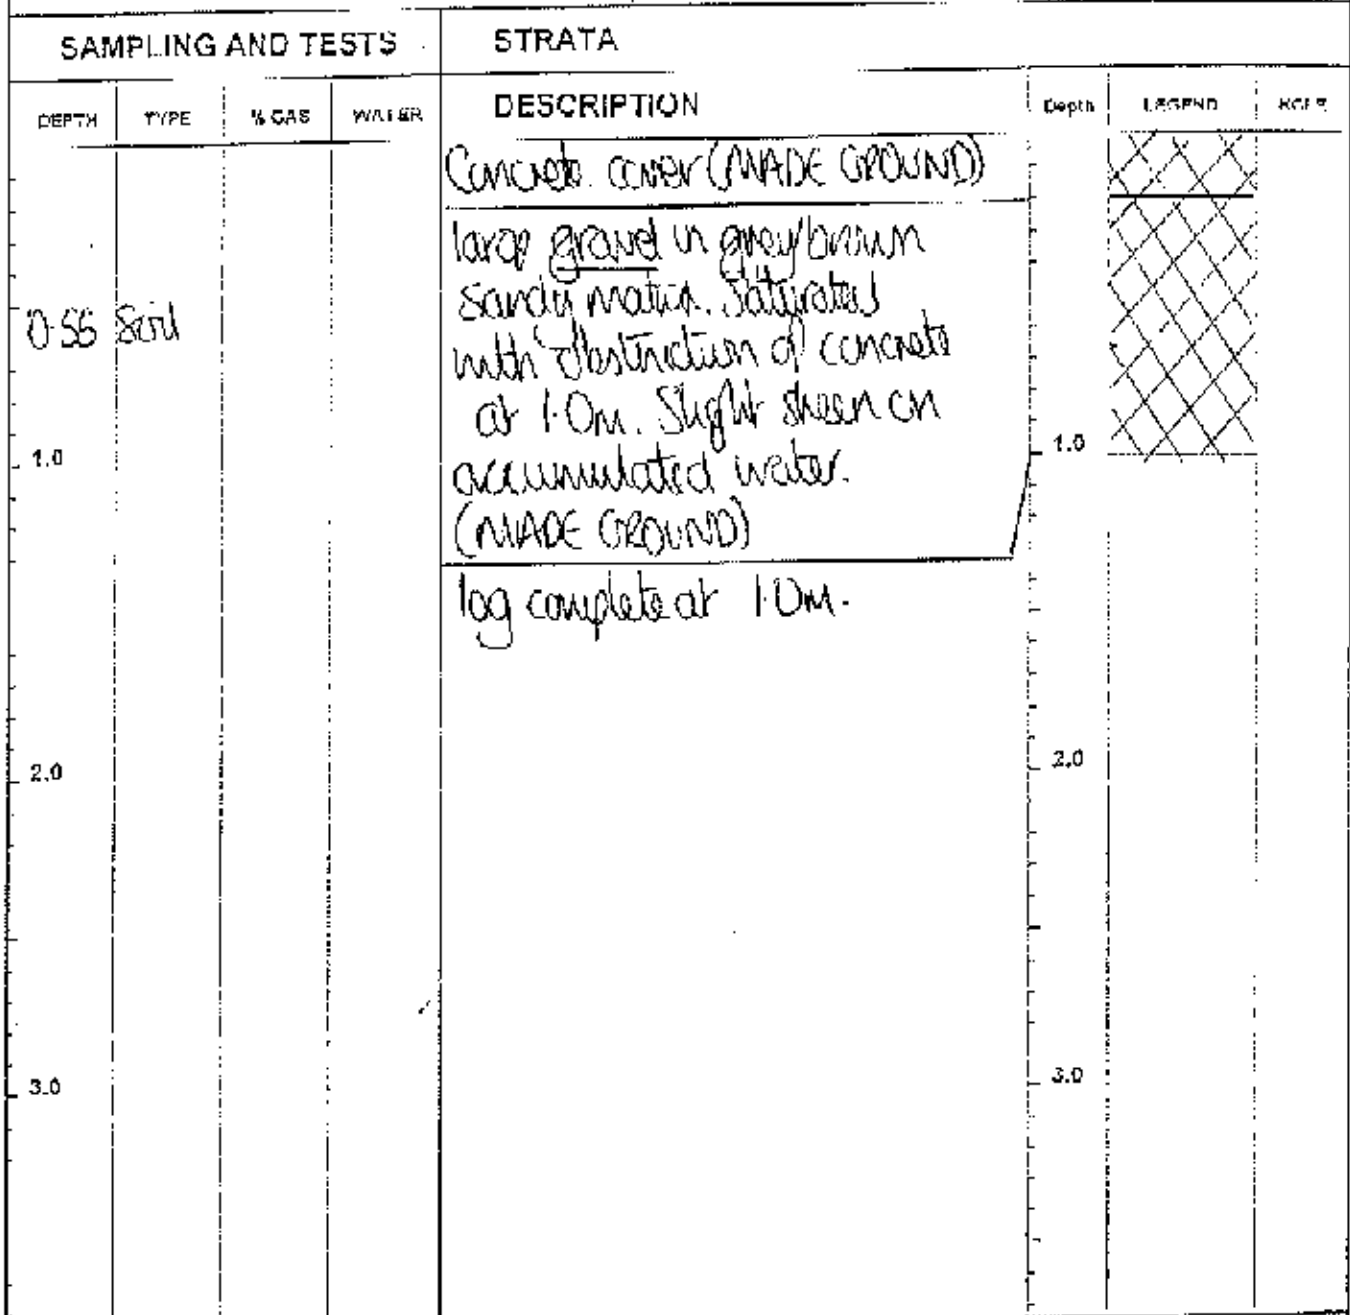 SAMPLING AND TESTS STRATA
DEPTH TYPE % GAS WATER DESCRIPTION Depth LEGEND
Concrete cover (MADE GROUND)
large gravel in grey/brown
sandy matrix. Saturated
0.55 Soil
with obstruction of concrete
at 1.0m. Slight sheen on
1.0 1.0
accumulated water.
(MADE GROUND)
log complete at 1.0m.
2.0 2.0
3.0 3.0